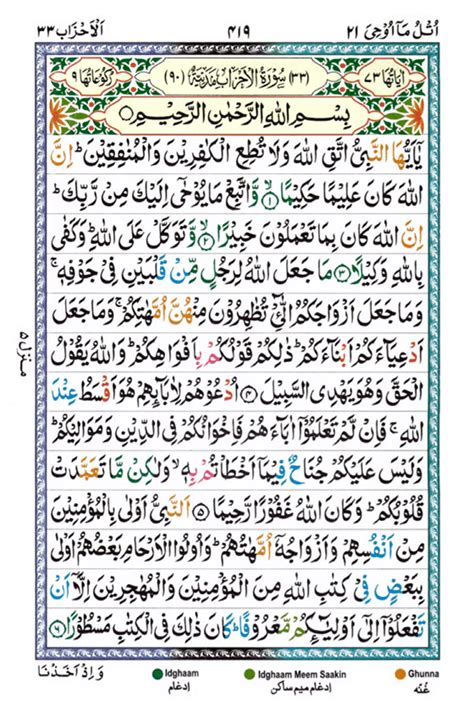 اُتْلُ مَآ اُوْحِیَ ٢١ ٤١٩ اَلْاَحْزَاب ٣٣
اٰیَاتُهَا ٧٣ (٣٣) سُوْرَةُ الْاَحْزَابِ مَدَنِيَّةٌ (٩٠) رُكُوْعَاتُهَا ٩
بِسْمِ اللّٰهِ الرَّحْمٰنِ الرَّحِيْمِ
يٰۤاَيُّهَا النَّبِيُّ اتَّقِ اللّٰهَ وَلَا تُطِعِ الْكٰفِرِيْنَ وَالْمُنٰفِقِيْنَ ؕ اِنَّ
اللّٰهَ كَانَ عَلِيْمًا حَكِيْمًا ۙ﴿١﴾ وَّاتَّبِعْ مَا يُوْحٰٓى اِلَيْكَ مِنْ رَّبِّكَ ؕ
اِنَّ اللّٰهَ كَانَ بِمَا تَعْمَلُوْنَ خَبِيْرًا ۙ﴿٢﴾ وَّتَوَكَّلْ عَلَى اللّٰهِ ؕ وَكَفٰى
بِاللّٰهِ وَكِيْلًا ﴿٣﴾ مَا جَعَلَ اللّٰهُ لِرَجُلٍ مِّنْ قَلْبَيْنِ فِيْ جَوْفِهٖ ۚ
وَمَا جَعَلَ اَزْوَاجَكُمُ الّٰٓـئِْ تُظٰهِرُوْنَ مِنْهُنَّ اُمَّهٰتِكُمْ ۚ وَمَا جَعَلَ
اَدْعِيَآءَكُمْ اَبْنَآءَكُمْ ؕ ذٰلِكُمْ قَوْلُكُمْ بِاَفْوَاهِكُمْ ؕ وَاللّٰهُ يَقُوْلُ
الْحَقَّ وَهُوَ يَهْدِى السَّبِيْلَ ﴿٤﴾ اُدْعُوْهُمْ لِاٰبَآئِهِمْ هُوَ اَقْسَطُ عِنْدَ
اللّٰهِ ۚ فَاِنْ لَّمْ تَعْلَمُوْٓا اٰبَآءَهُمْ فَاِخْوَانُكُمْ فِى الدِّيْنِ وَمَوَالِيْكُمْ ؕ
وَلَيْسَ عَلَيْكُمْ جُنَاحٌ فِيْمَآ اَخْطَاْتُمْ بِهٖ ۙ وَلٰكِنْ مَّا تَعَمَّدَتْ
قُلُوْبُكُمْ ؕ وَكَانَ اللّٰهُ غَفُوْرًا رَّحِيْمًا ﴿٥﴾ اَلنَّبِيُّ اَوْلٰى بِالْمُؤْمِنِيْنَ
مِنْ اَنْفُسِهِمْ وَاَزْوَاجُهٗٓ اُمَّهٰتُهُمْ ؕ وَاُولُوا الْاَرْحَامِ بَعْضُهُمْ اَوْلٰى
بِبَعْضٍ فِيْ كِتٰبِ اللّٰهِ مِنَ الْمُؤْمِنِيْنَ وَالْمُهٰجِرِيْنَ اِلَّآ اَنْ
تَفْعَلُوْٓا اِلٰٓى اَوْلِيٰٓئِكُمْ مَّعْرُوْفًا ؕ كَانَ ذٰلِكَ فِى الْكِتٰبِ مَسْطُوْرًا ﴿٦﴾
منزل ٥
وَاِذْ اَخَذْنَا
Idghaam Idghaam Meem Saakin Ghunna
ادغام ادغام میم ساکن غُنّه